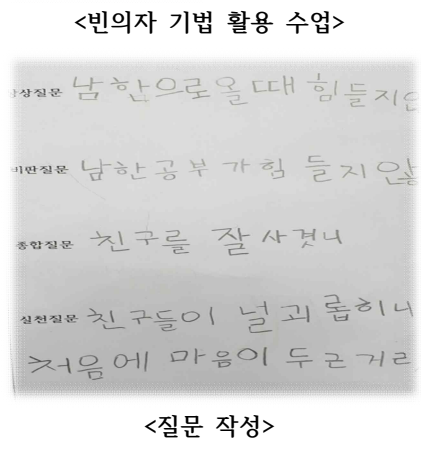 <빈의자 기법 활용 수업>
상상질문 남한으로올때 힘들지
비판질문 남한공부가힘 들지 않
종합질문 친구를 잘 사겼니
실천질문 친구들이 널 괴롭히니
처음에 마음이 두근거리
<질문 작성>